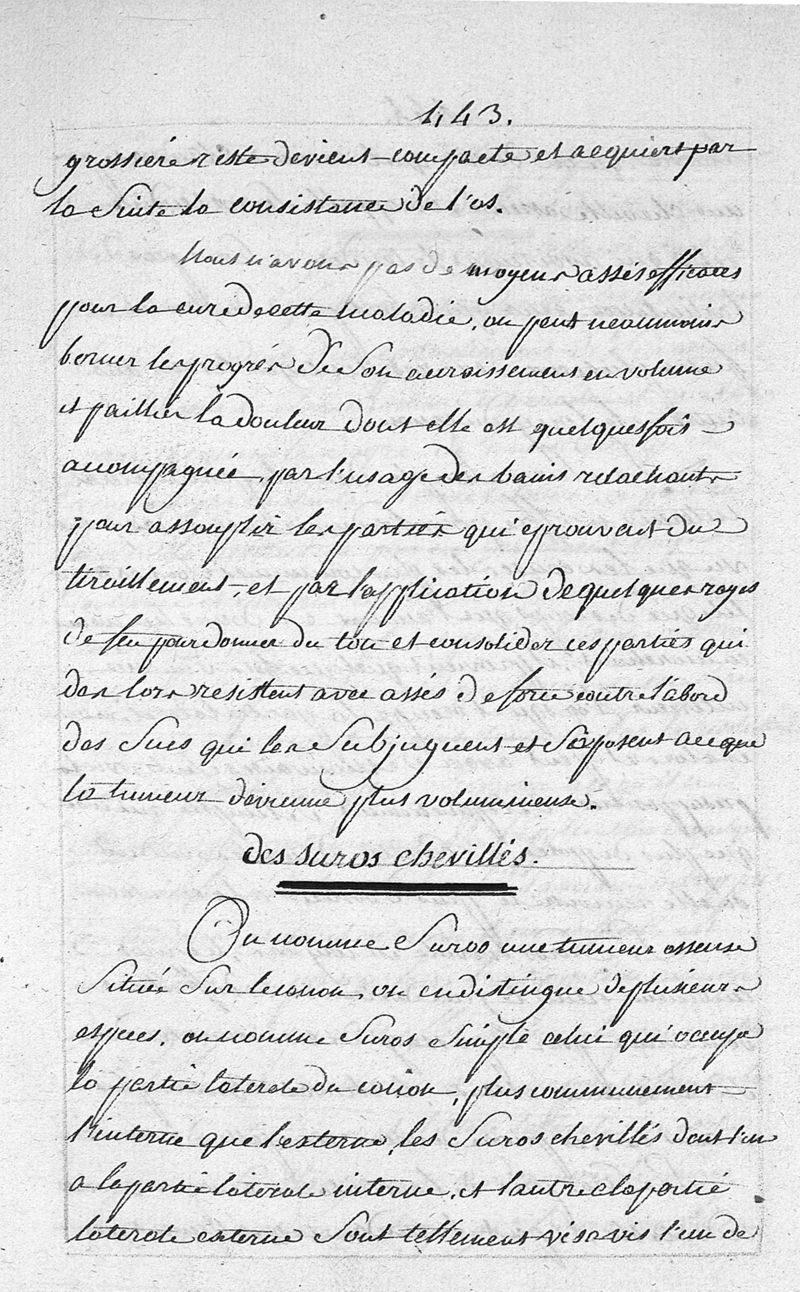 443.
grossiere reste devient compacte et acquiert par
la suite la consistance de l'os.
Nous n'avons pas de moyens assés efficaces
pour la cure de cette maladie, on peut neaumoins
borner les progrés de son accroissement en volume
et pallier la douleur dont elle est quelquesfois
acompagnée, par l'usage des bains relachants
pour assouplir les parties qui eprouvent du
tiraillement, et par l'application de quelques rayes
de feu pour donner du ton et consolider ces parties qui
des lors resistent avec assés de force contre l'abord
des sucs qui les subjuguent et s'oposent a ce que
la tumeur devienne plus volumineuse.
des suros chevillés.
On nomme Suros une tumeur osseuse
située sur le canon, on en distingue de plusieurs
especes. on nomme suros simple celui qui occupe
la partie laterale du canon, plus communement
l'interne que l'externe, les suros chevillés dont l'un
a la partie laterale interne, et l'autre a la partie
laterale externe sont tellement vis a vis l'un de